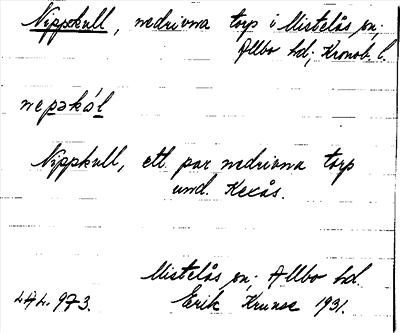 Nippkull, nedrivna torp i Mistelås sn;
Allbo hd; Kronob. l.
nepəkál
Nippkull, ett par nedrivna torp
und. Kexås.
Mistelås sn; Allbo hd.
Erik Kruuse 1931.